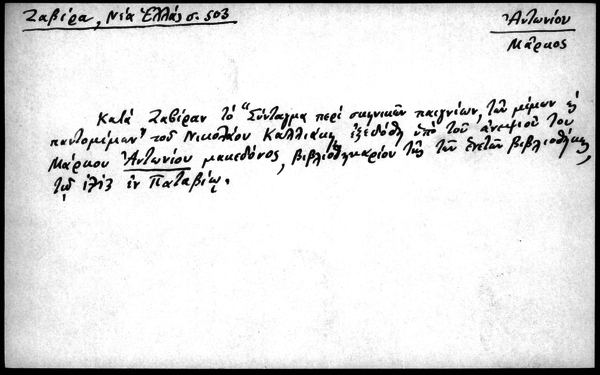 Ζαβίρα, Νέα Ἑλλάς σ. 503
Ἀντωνίου
Μάρκος
Κατά Ζαβίραν τό "Σύνταγμα περί σκηνικῶν παιγνίων, τῶν μίμων ϗ
παντομίμων" τοῦ Νικολάου Καλλιάκη ἐξεδόθη ὑπό τοῦ ἀνεψιοῦ του
Μάρκου Ἀντωνίου μακεδόνος, βιβλιοθηκαρίου τῆς τῶν ἑνετῶν βιβλιοθήκης,
τῷ ἐν Παταβίῳ.